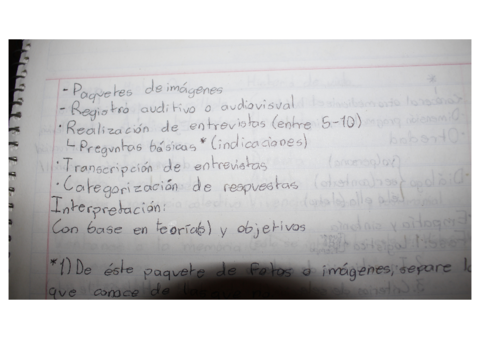 - Paquetes de imágenes
- Registro auditivo o audiovisual
· Realización de entrevistas (entre 5-10)
↳ Preguntas básicas * (indicaciones)
· Transcripción de entrevistas
· Categorización de respuestas
Interpretación:
Con base en teoría(s) y objetivos
*1) De éste paquete de fotos o imágenes, separe l
que conoce de